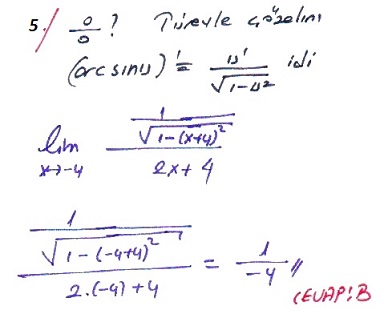 5. 0/0 ? Türevle çözelim
(arcsinu)' = u'/√(1-u²) idi
lim x→-4 (1/√(1-(x+4)²))/(2x+4)
(1/√(1-(-4+4)²))/(2.(-4)+4) = 1/-4 //
CEVAP: B